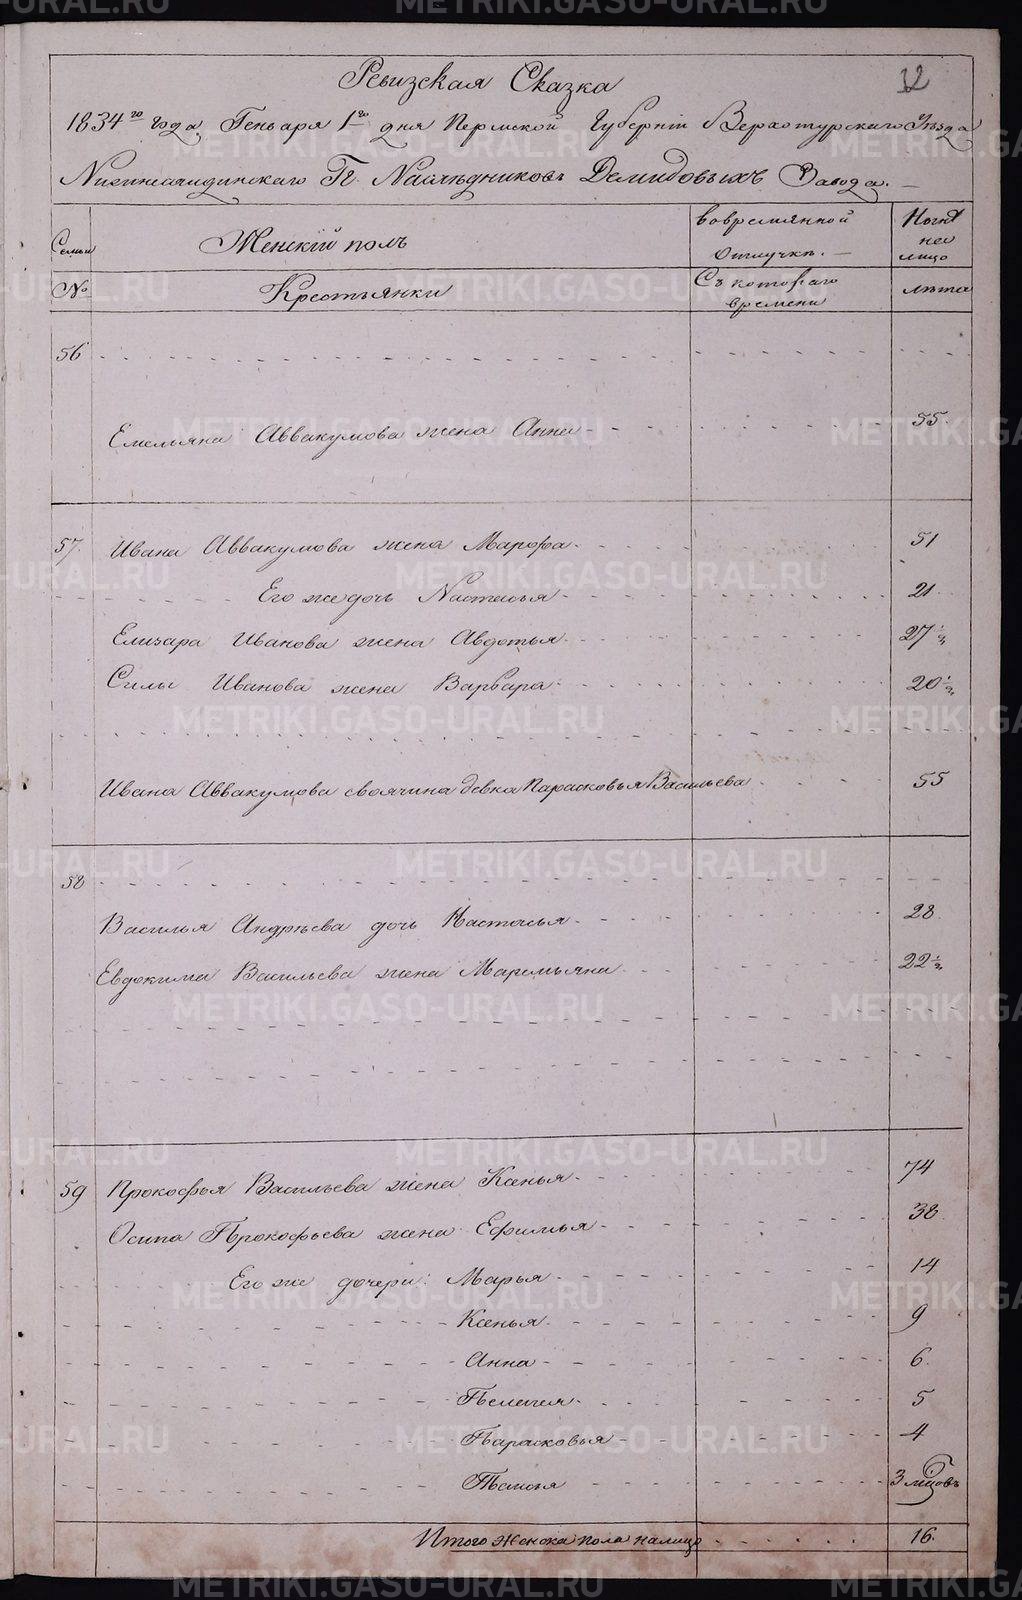 32
Ревизская Сказка
1834го года Генваря 1го дня Пермской Губернiи Верхотурскаго Уѣзда
Нижнесалдинскаго Гг. Наслѣдниковъ Демидовыхъ Завода.
Семьи
Женскiй полъ
вовремянной отлучкѣ.
Ныне на лицо
№
Крестьянки
Съ котораго времени
лѣта
56
Емельяна Аввакумова жена Анна 55
57. Ивана Аввакумова жена Марфа 51
Его же дочь Настасья 21
Елизара Иванова жена Авдотья 27 1/2
Силы Иванова жена Варвара 20 1/2
Ивана Аввакумова своячина девка Парасковья Васильева 55
58
Василья Андрѣева дочь Настасья 28
Евдокима Васильева жена Маремьяна 22 1/2
59 Прокофья Васильева жена Ксенья 74
Осипа Прокофьева жена Ефимья 38
Его же дочери: Марья 14
Ксенья 9
Анна 6
Пелагея 5
Парасковья 4
3 мцовъ
Итого женска пола налицо 16.
METRIKI.GASO-URAL.RU